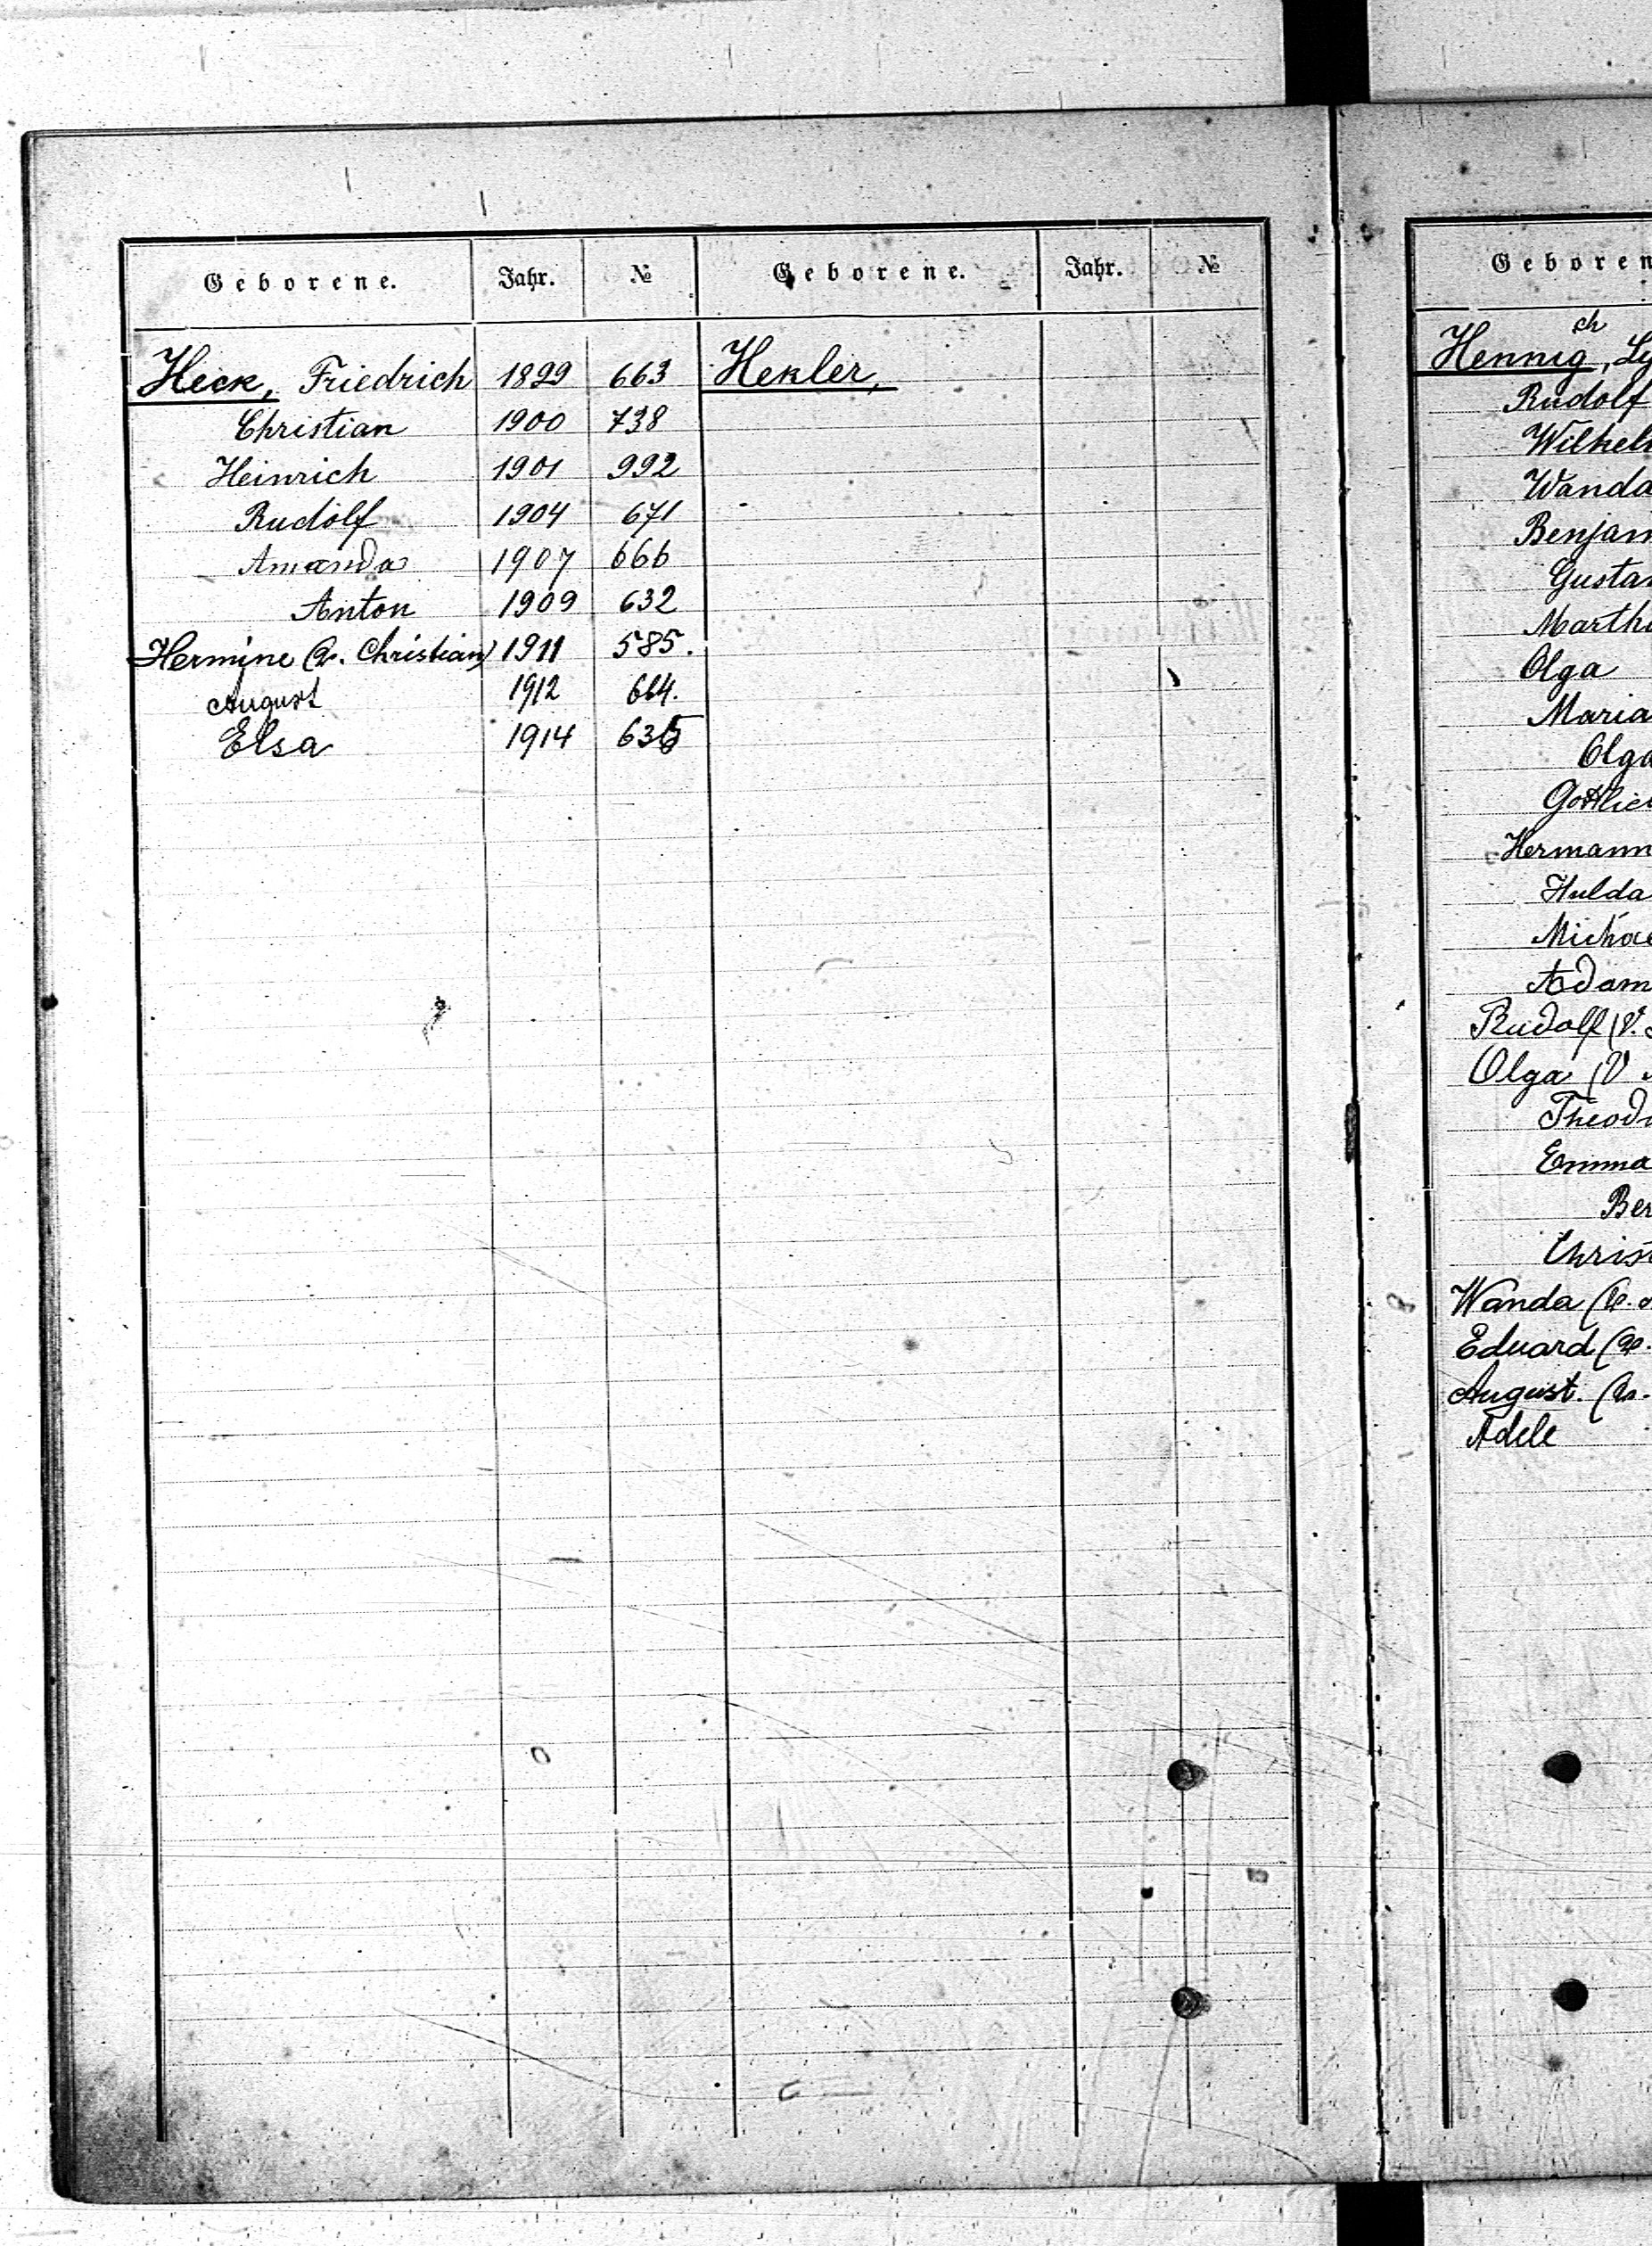 Geborene. Jahr. № Geborene. Jahr. №
Heck, Friedrich 1899 663 Hekler,
Christian 1900 738
Heinrich 1901 992
Rudolf 1904 671
Amanda 1907 666
Anton 1909 632
Hermine (v. Christian) 1911 585.
August 1912 664.
Elsa 1914 635
Geboren
ch
Hennig, Ly
Rudolf
Wilhel
Wanda
Benjam
Gustav
Martha
Olga
Maria
Olga
Gottlie
Hermann
Hulda
Michae
Adam
Rudolf (V.
Olga (V
Theod
Emma
Ber
Christ
Wanda (v.
Eduard (v.
August. (v.
Adele